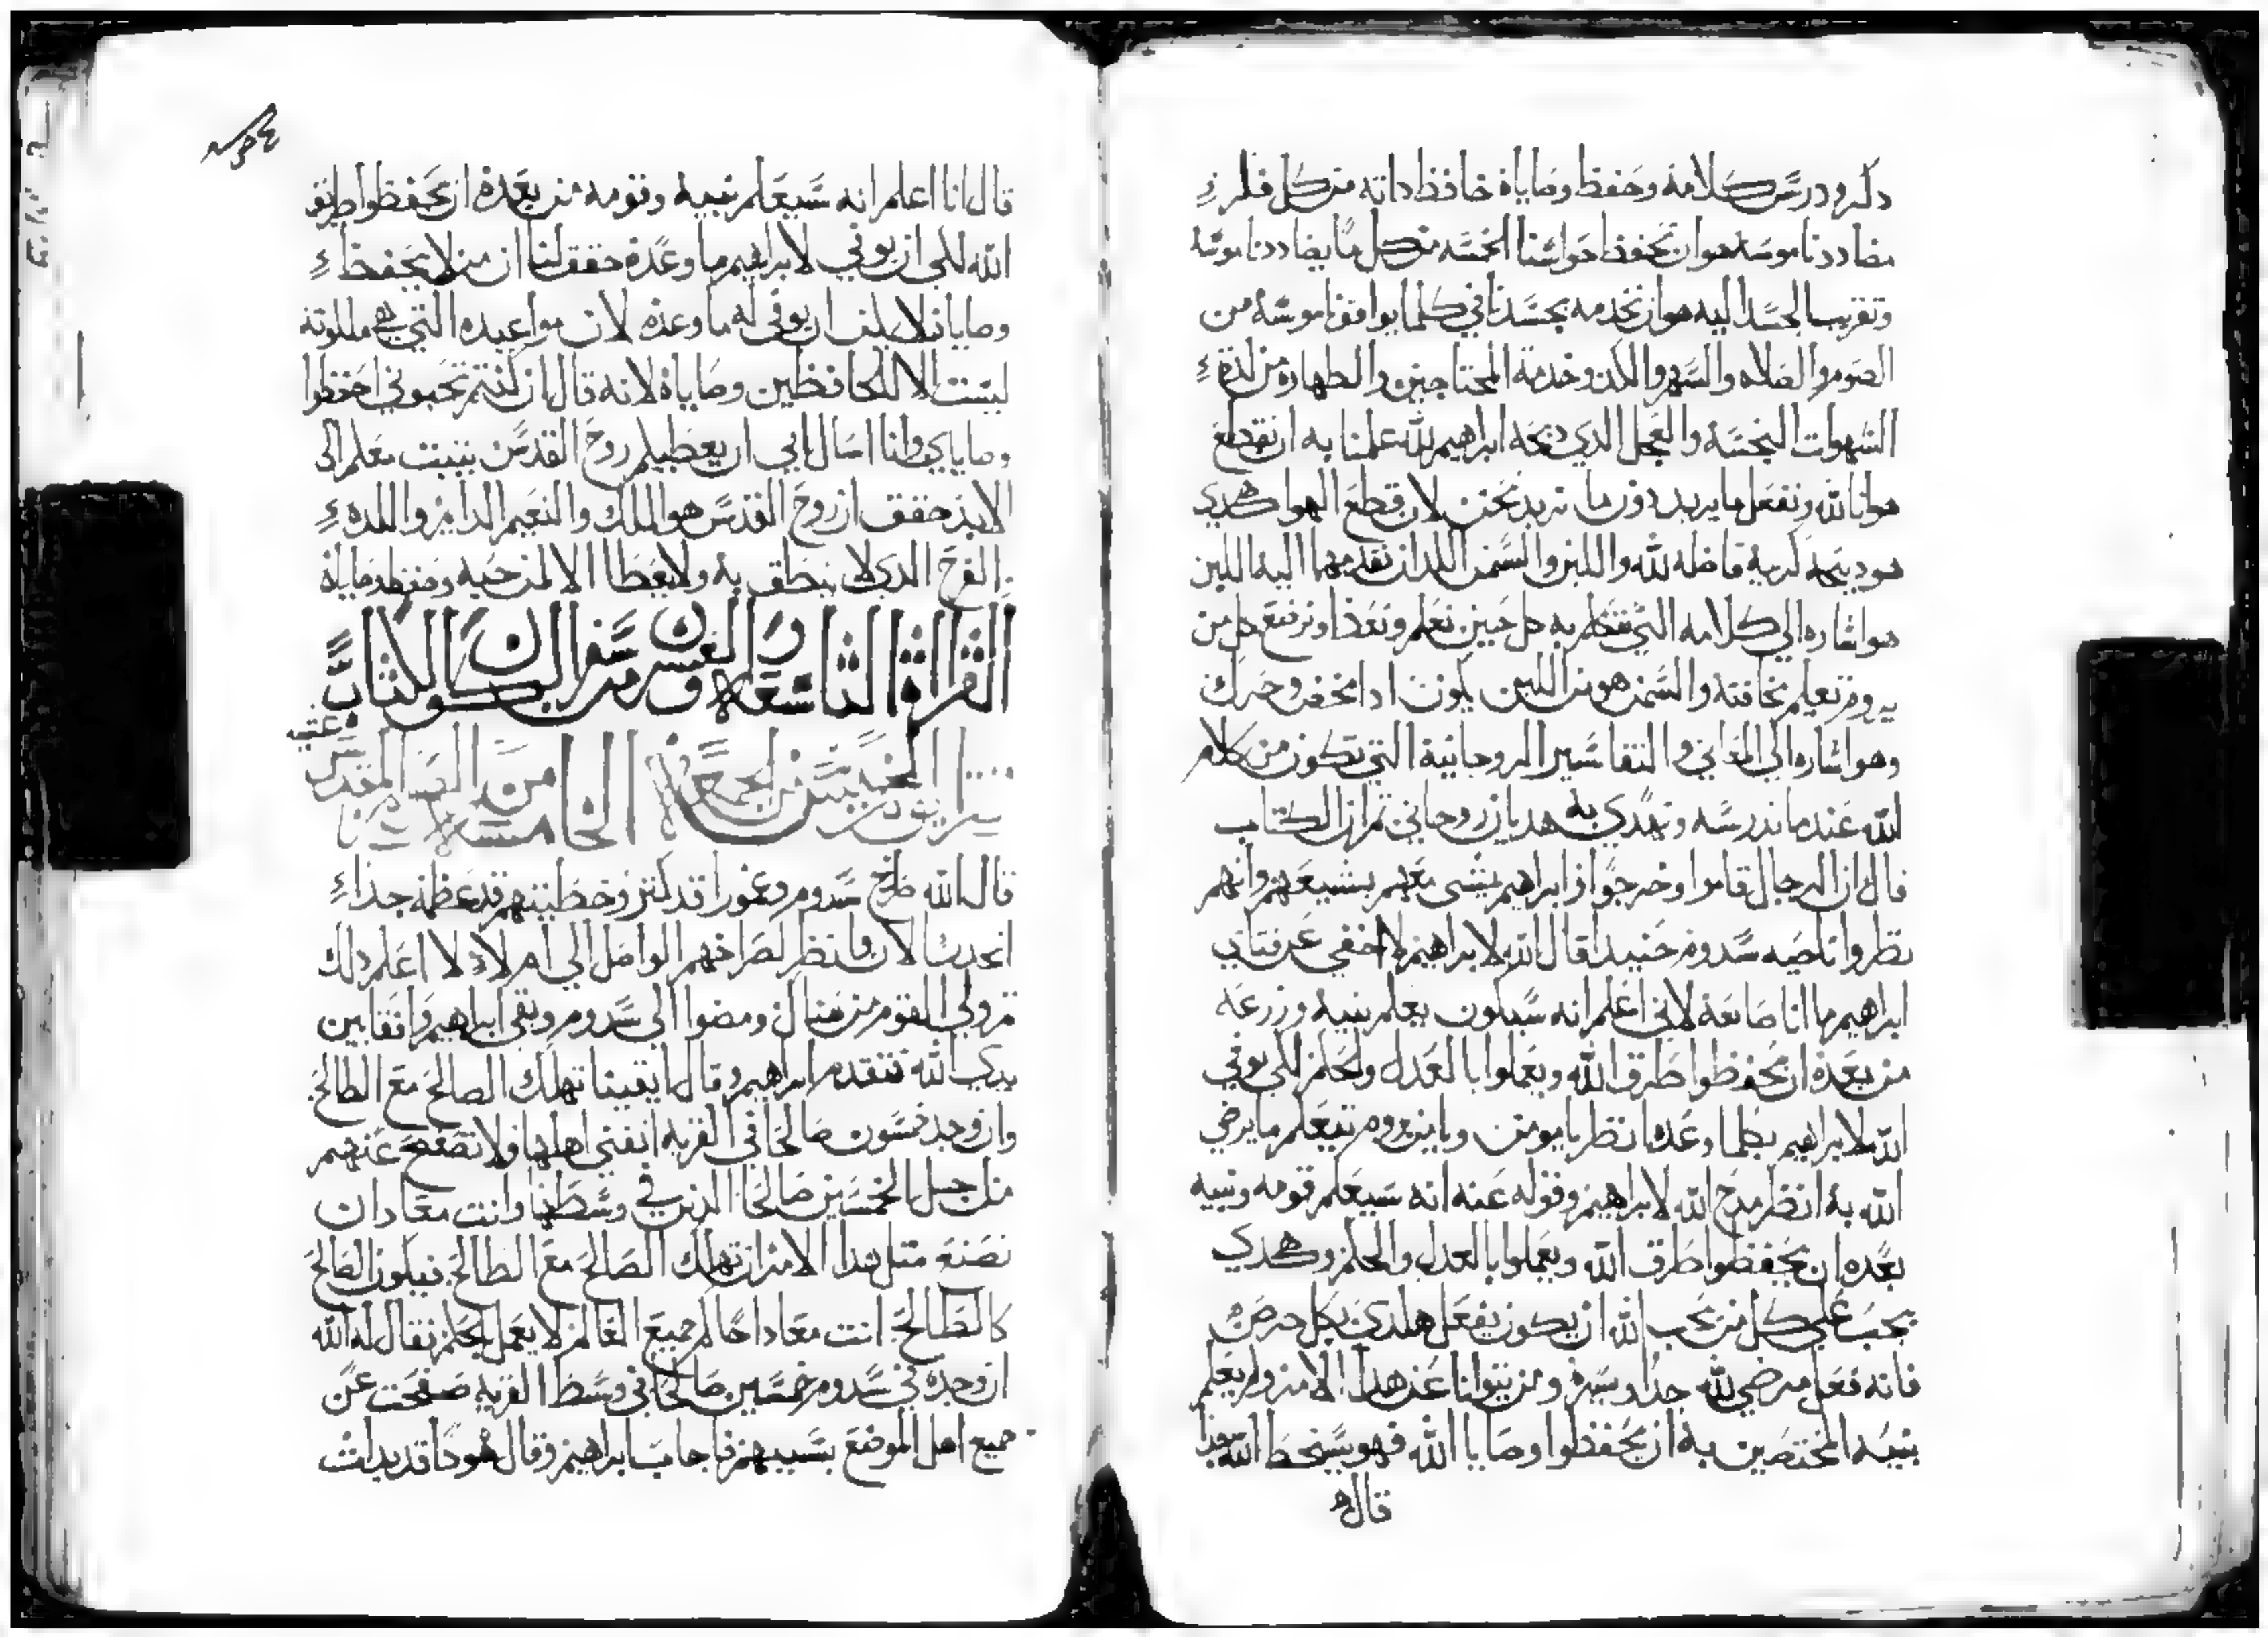 دكره ودرس كلامه وحفظ وصاياه حافظ داته من كل فلر
مضاددناموسه هوان نحفظ حواسنا الخمسه من كل ما يضاددناموسه
وتقريب الجسد اليه هوان نخدمه بجسدنا في كلما يوافق ناموسه من
الصوم والصلاه والسهر والكد وخدمة المحتاجين والطهاره من لدة
الشهوات النجسه والعجل الدي دبحه ابراهيم لله علمنا به ان نقطع
هوانا لله ونفعل ما يريد دون ما نريد نحن لان قطع الهوا كهدي
هو دبيحه كريمه فاضله لله واللبن والسمن اللدان نقدمهما اليه اللبن
هو اشاره الي كلامه التي نتكلم به كل حين نعلم ونغدا ونرضع كل من
يروم تعليم مخافته والسمن هو من اللبن يكون ادا مخض وحرك
وهو اشاره الي المعاني والتفاسير الروحانيه التي تكون من كلام
الله عند ما ندرسه ونهدي به هديان روحاني ثم ان الكتاب
قال ان الرجال قاموا وخرجوا وابراهيم مشى معهم يشيعهم وانهم
نظروا ناحيه سدوم حنيدا قال الله لابراهيم لا اخفي عن فتاي
ابراهيم ما انا صانعه لاني اعلم انه سيكون يعلم بنيه وزرعه
من بعده ان يحفظوا طرق الله ويعملوا بالعدل والحكم لكي يوفي
الله لابراهيم بكلما وعده انظر يا مومن ويا من يروم يتعلم ما يرضي
الله به انظر مدح الله لابراهيم وقوله عنه انه سيعلم قومه وبنيه
بعده ان يحفظوا طرق الله ويعملوا بالعدل والحكم وكهدي
يجب علي كل من يحب الله ان يكون يفعل هكدى بكل حرص
فانه فعل مرضي لله جدا ويسره ومن يتوانا عن هدا الامر ولم يعلم
بنيه المختصين به ان يحفظوا وصايا الله فهو يسخط الله جدا
قال
قال انا اعلم انه سيعلم بنيه وقومه من بعده ان يحفظوا طرق
الله لكي ان يوفي لابراهيم ما وعده حقق لنا ان من لا يحفظ
وصاياه لا يمكن ان يوفى له ما وعده لان مواعيده التي هي ملكوته
ليست الا للحافظين وصاياه لانه قال ان كنتم تحبوني احفظوا
وصاياي وانا اسال ابي ان يعطيكم روح القدس يتبت معكم الى
الابد حقق ان روح القدس هو الملك والنعيم الدايم واللده
والفرح الدي لا ينطق به ولا يعطا الا لمن حبه وحفظ وصاياه
القراة التاسعه والعشرون من سفر التكوين
من الخامسه من الصوم المقدس
قال الله صراخ سدوم وعمورا قد كتر وخطيتهم قد عظمة جدا
انحدرت الان وانظر لصراخهم الواصل الي ام لا والا اعلم دلك
تم ولي القوم من هناك ومضوا الى سدوم وبقي ابراهيم واقفا بين
يدي الله فتقدم ابراهيم وقال ايقينا تهلك الصالح مع الطالح
وان وجد خمسون صالحا في القريه انفني اهلها ولا تصفح عنهم
من اجل الخمسين صالحا الدين في وسطها وانت معادا ان
تصنع متل هدا الامر ان تهلك الصالح مع الطالح فيكون الصالح
كالطالح انت معادا حاكم جميع العالم لا يعمل بحكم فقال له الله
ان وجد في سدوم خمسين صالحا في وسط القريه صفحت عن
جميع اهل الموضع بسببهم فاجاب ابراهيم وقال هودا قد بدات